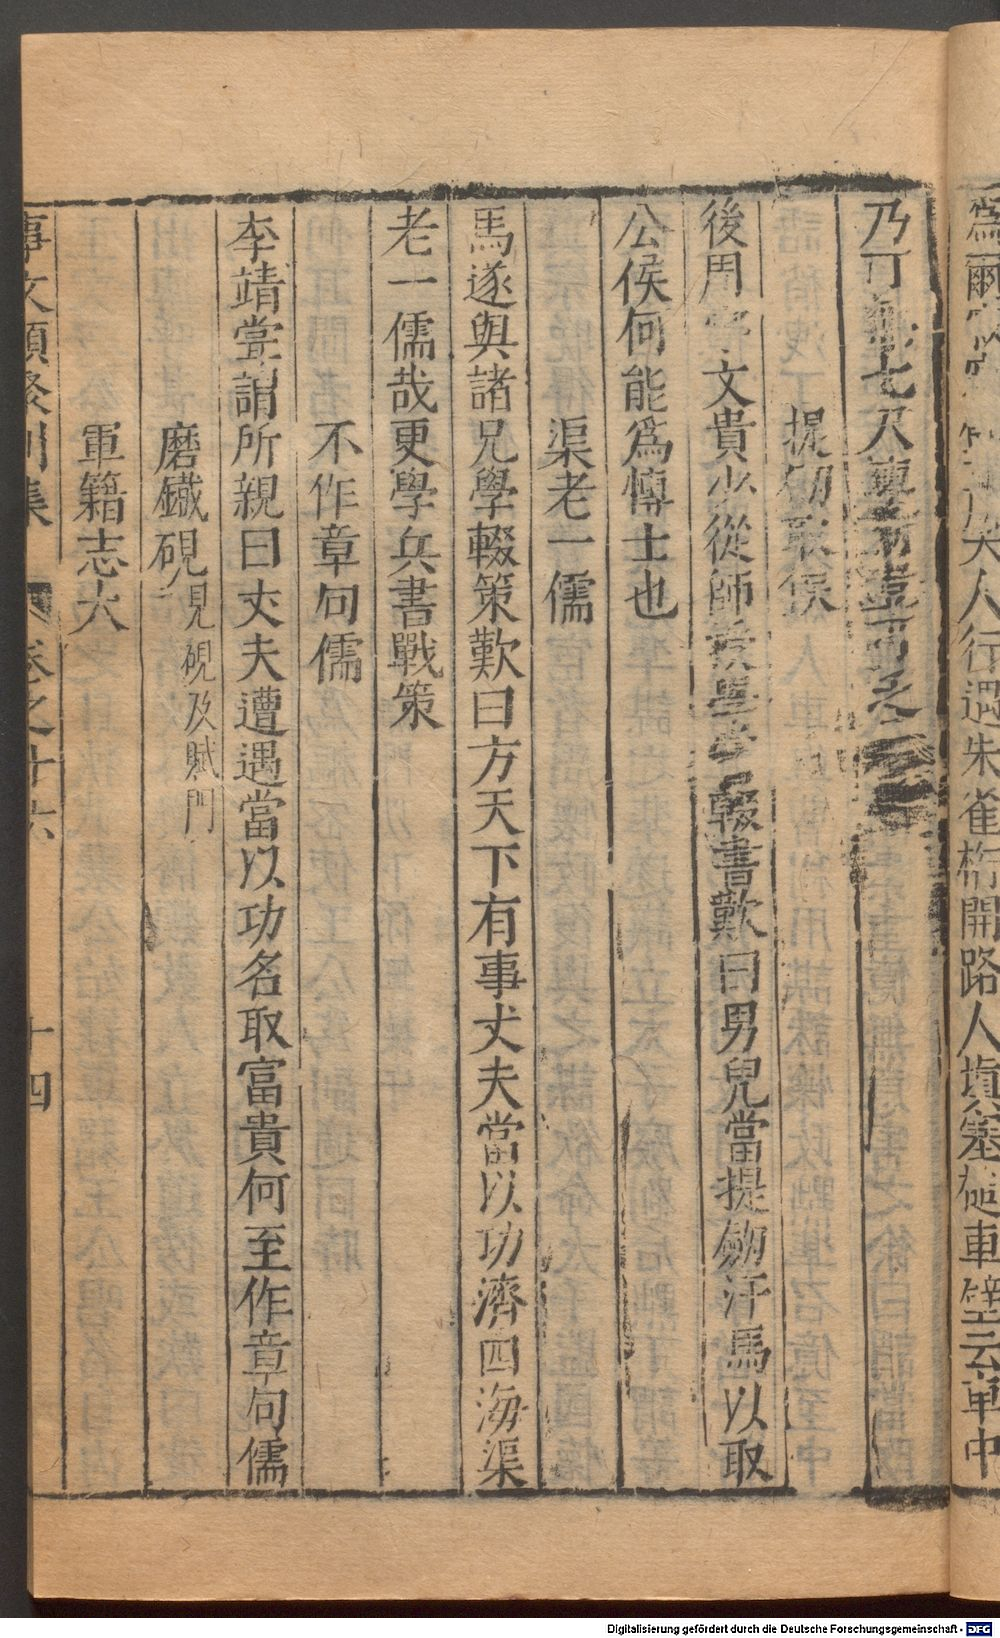 爲爾 人行遇朱雀桁開路人塡塞槌車壁云車中
乃可無七尺車前豈可乏
提劒取侯
後周宇文貴少從師受學嘗輟書歎曰男兒當提劒汗馬以取
公侯何能爲愽士也
渠老一儒
馬遂與諸兄學輟策歎曰方天下有事丈夫當以功濟四海渠
老一儒哉更學兵書戰策
不作章句儒
李靖甞謂所親曰丈夫遭遇當以功名取富貴何至作章句儒
磨鐵硯見硯及賦門
軍籍志大
事文類聚別集 卷之十六 十四
Digitalisierung gefördert durch die Deutsche Forschungsgemeinschaft - DFG